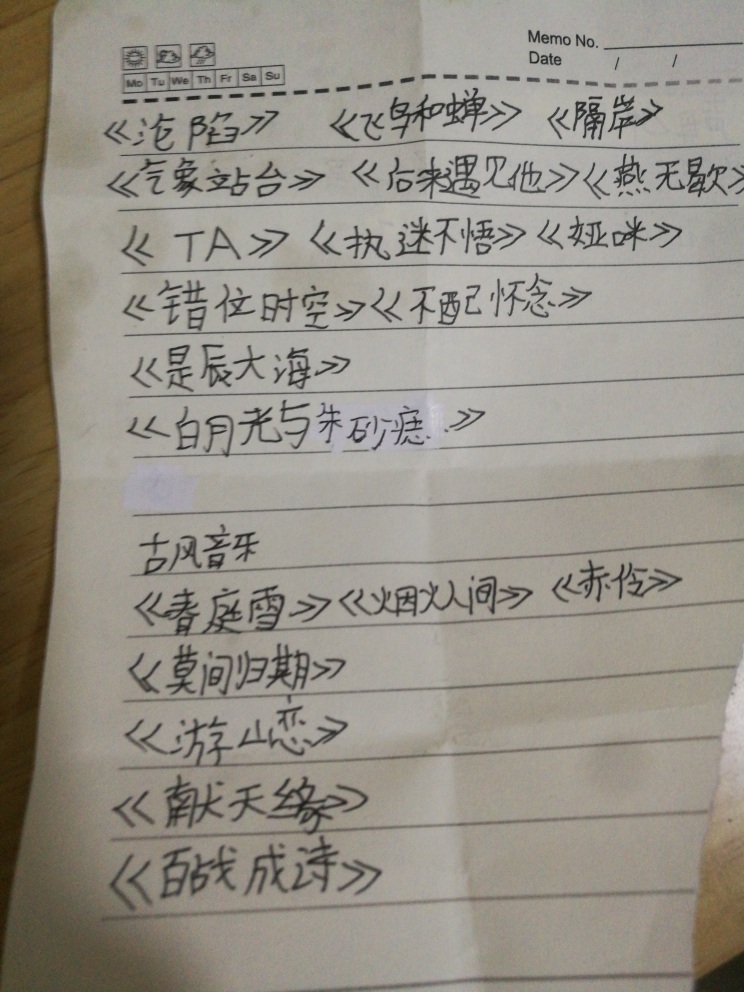 Memo No.
Date / /
Mo Tu We Th Fr Sa Su
《沦陷》 《飞鸟和蝉》 《隔岸》
《气象站台》 《后来遇见他》《燕无歇》
《TA》《执迷不悟》《娅咪》
《错位时空》《不配怀念》
《是辰大海》
《白月光与朱砂痣》
古风音乐
《春庭雪》《烟火人间》 《赤伶》
《莫间归期》
《游山恋》
《献天缘》
《百战成诗》